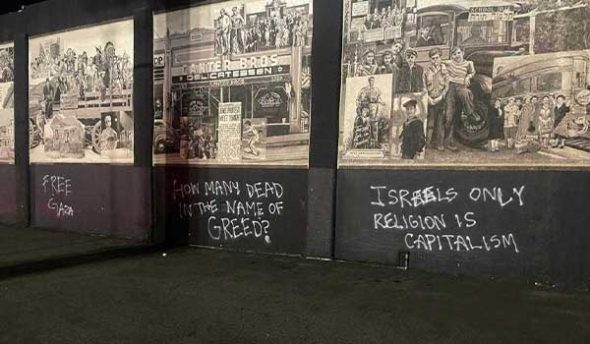 CANTER BROS
DELICATESSEN
FREE
GAZA
HOW MANY DEAD
IN THE NAME OF
GREED?
ISRAELS ONLY
RELIGION IS
CAPITALISM